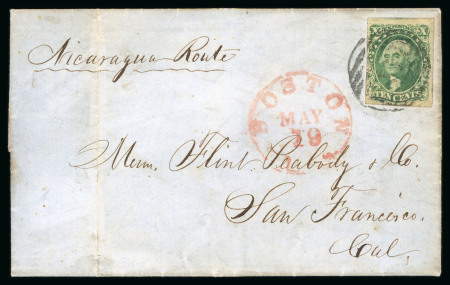 Nicaragua Route
X X
TEN CENTS
BOSTON
MAY
Messrs. Flint, Peabody & Co.
San Francisco.
Cal.